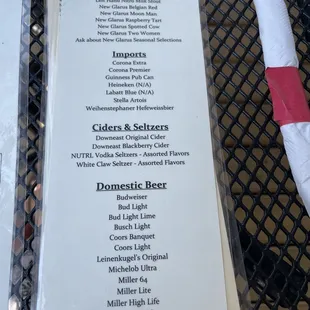 Left Hand Nitro Milk Stout
New Glarus Belgian Red
New Glarus Moon Man
New Glarus Raspberry Tart
New Glarus Spotted Cow
New Glarus Two Women
Ask about New Glarus Seasonal Selections
Imports
Corona Extra
Corona Premier
Guinness Pub Can
Heineken (N/A)
Labatt Blue (N/A)
Stella Artois
Weihenstephaner Hefeweissbier
Ciders & Seltzers
Downeast Original Cider
Downeast Blackberry Cider
NUTRL Vodka Seltzers - Assorted Flavors
White Claw Seltzer - Assorted Flavors
Domestic Beer
Budweiser
Bud Light
Bud Light Lime
Busch Light
Coors Banquet
Coors Light
Leinenkugel's Original
Michelob Ultra
Miller 64
Miller Lite
Miller High Life